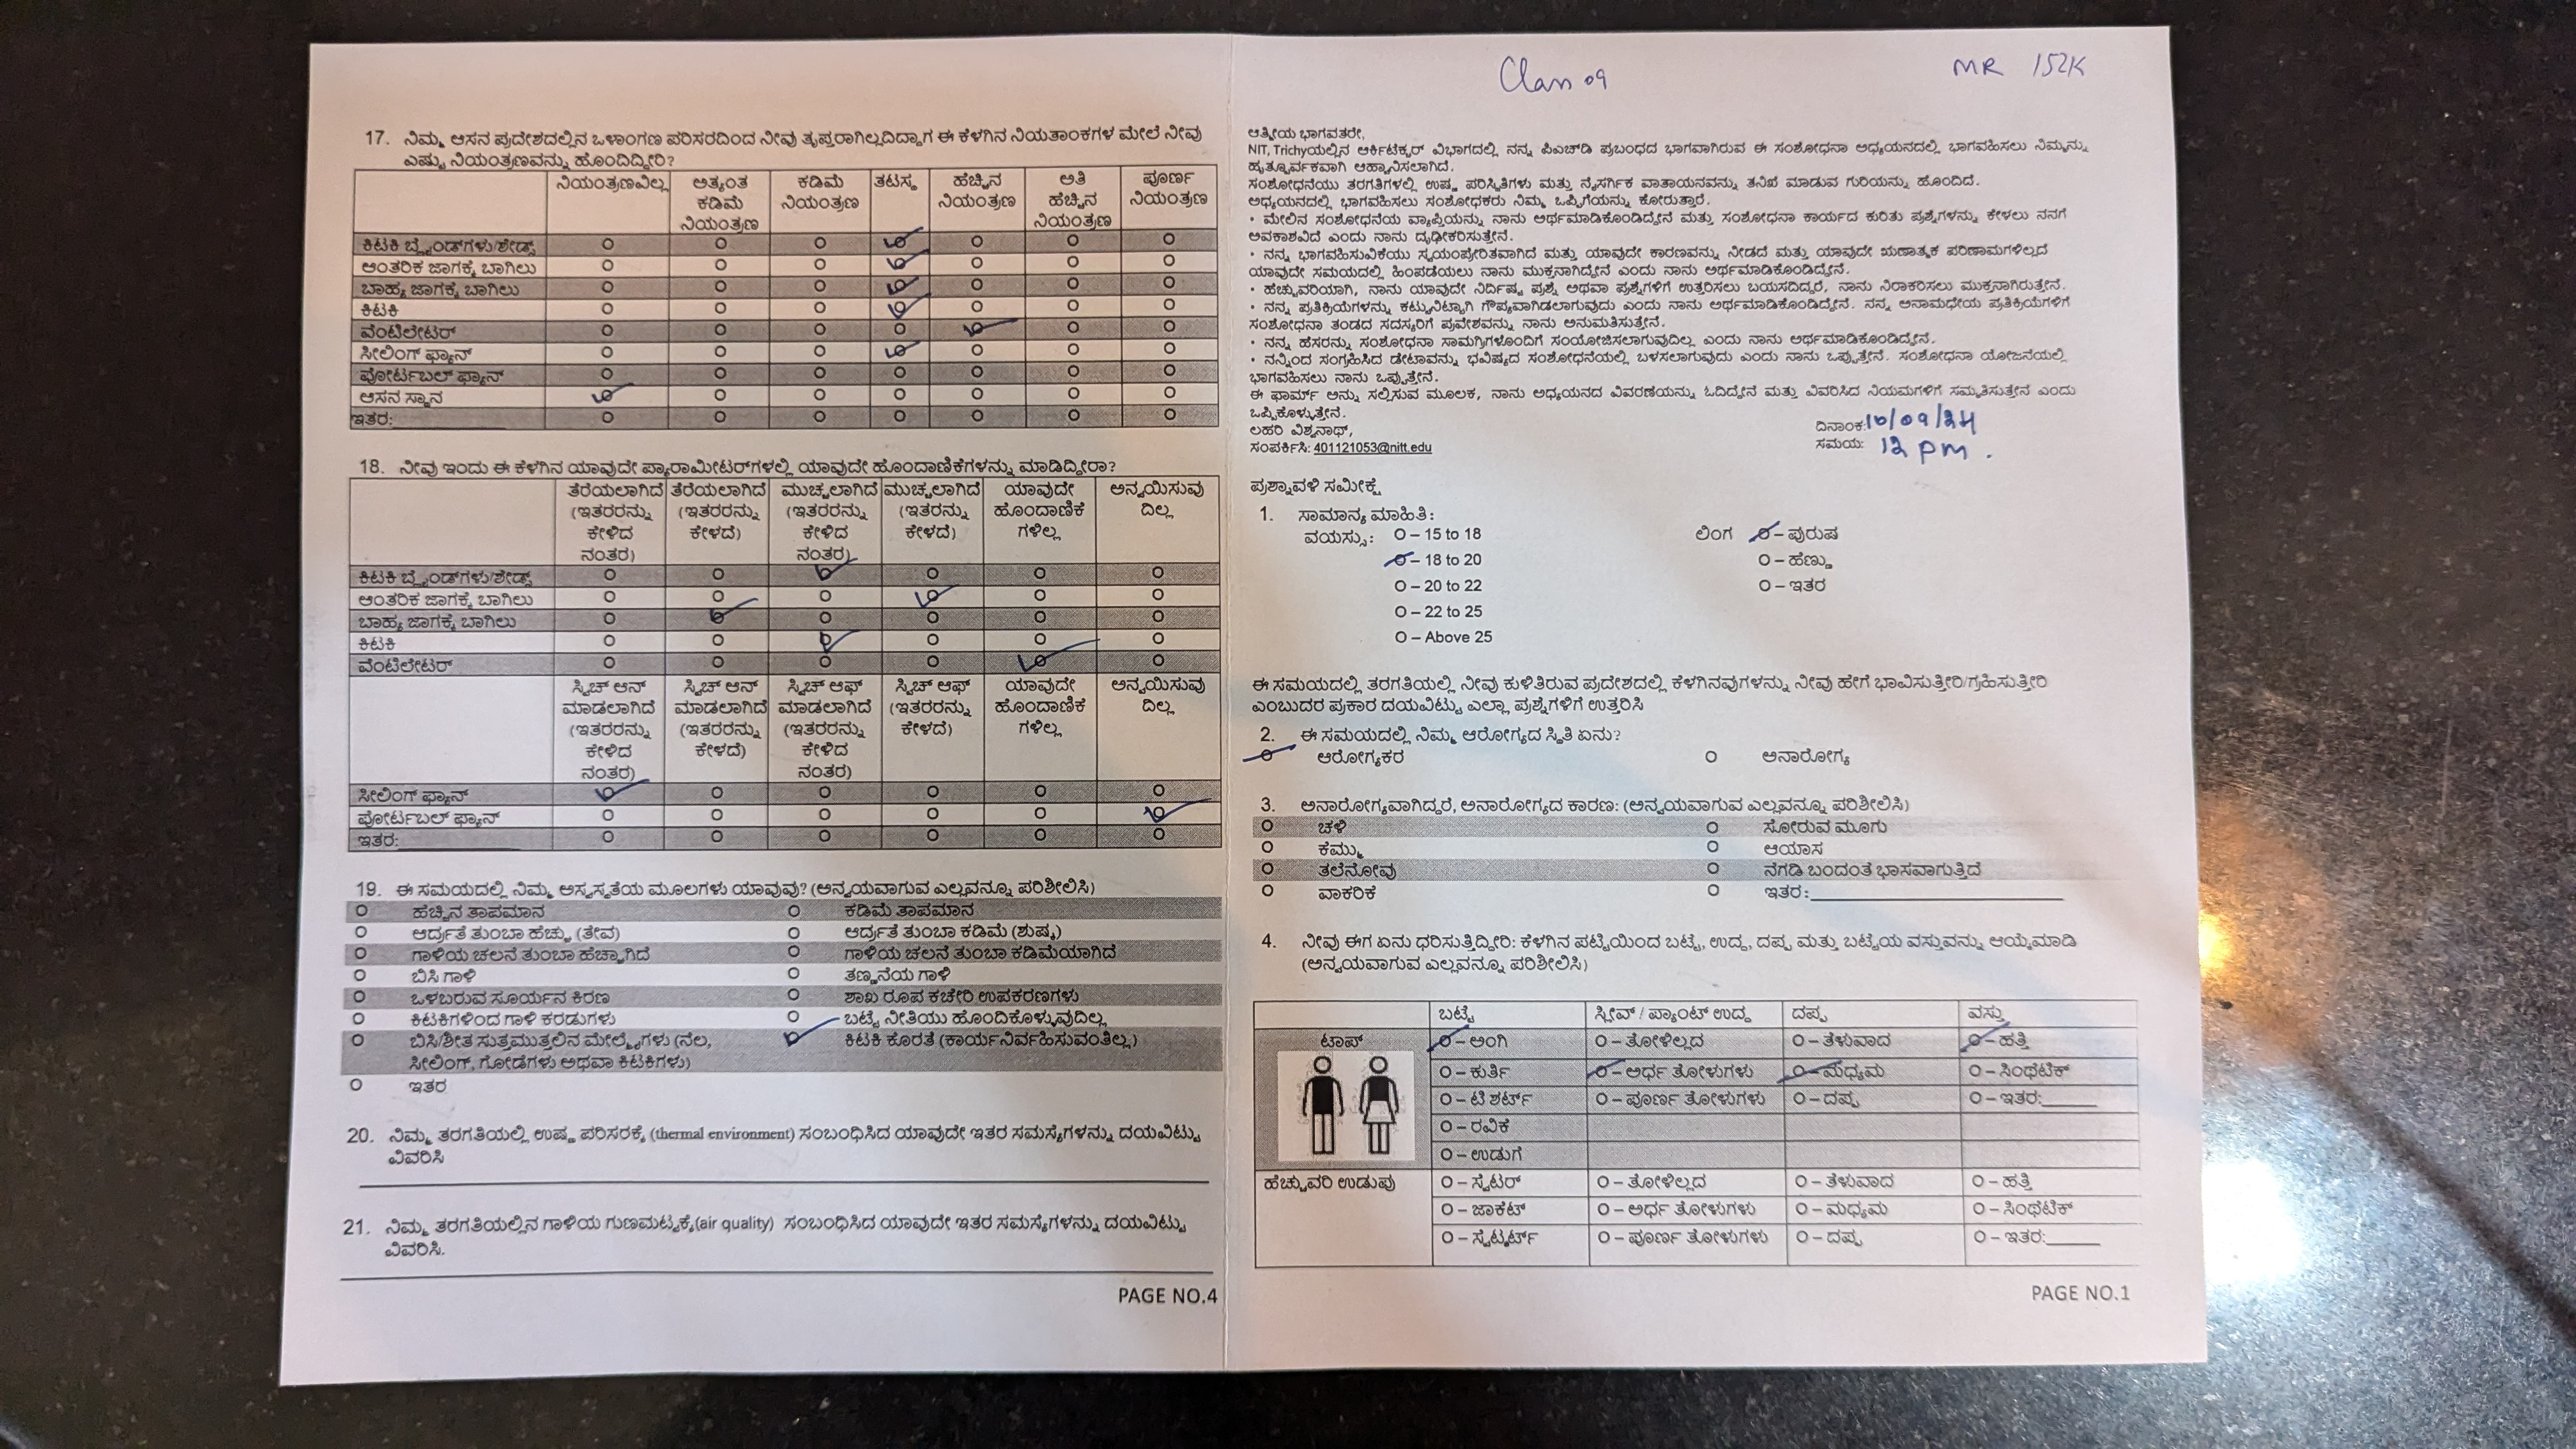 17. ನಿಮ್ಮ ಆಸನ ಪ್ರದೇಶದಲ್ಲಿನ ಒಳಾಂಗಣ ಪರಿಸರದಿಂದ ನೀವು ತೃಪ್ತರಾಗಿಲ್ಲದಿದ್ದಾಗ ಈ ಕೆಳಗಿನ ನಿಯತಾಂಕಗಳ ಮೇಲೆ ನೀವು
ಎಷ್ಟು ನಿಯಂತ್ರಣವನ್ನು ಹೊಂದಿದ್ದೀರಿ?
ನಿಯಂತ್ರಣವಿಲ್ಲ ಅತ್ಯಂತ ಕಡಿಮೆ ನಿಯಂತ್ರಣ ಕಡಿಮೆ ನಿಯಂತ್ರಣ ತಟಸ್ಥ ಹೆಚ್ಚಿನ ನಿಯಂತ್ರಣ ಅತಿ ಹೆಚ್ಚಿನ ನಿಯಂತ್ರಣ ಪೂರ್ಣ ನಿಯಂತ್ರಣ
ಕಿಟಕಿ ಬ್ಲೈಂಡ್‌ಗಳು/ಶೇಡ್ಸ್
ಆಂತರಿಕ ಜಾಗಕ್ಕೆ ಬಾಗಿಲು
ಬಾಹ್ಯ ಜಾಗಕ್ಕೆ ಬಾಗಿಲು
ಕಿಟಕಿ
ವೆಂಟಿಲೇಟರ್
ಸೀಲಿಂಗ್ ಫ್ಯಾನ್
ಪೋರ್ಟಬಲ್ ಫ್ಯಾನ್
ಆಸನ ಸ್ಥಾನ
ಇತರ:
18. ನೀವು ಇಂದು ಈ ಕೆಳಗಿನ ಯಾವುದೇ ಪ್ಯಾರಾಮೀಟರ್‌ಗಳಲ್ಲಿ ಯಾವುದೇ ಹೊಂದಾಣಿಕೆಗಳನ್ನು ಮಾಡಿದ್ದೀರಾ?
ತೆರೆಯಲಾಗಿದೆ (ಇತರರನ್ನು ಕೇಳಿದ ನಂತರ) ತೆರೆಯಲಾಗಿದೆ (ಇತರರನ್ನು ಕೇಳದೆ) ಮುಚ್ಚಲಾಗಿದೆ (ಇತರರನ್ನು ಕೇಳಿದ ನಂತರ) ಮುಚ್ಚಲಾಗಿದೆ (ಇತರನ್ನು ಕೇಳದೆ) ಯಾವುದೇ ಹೊಂದಾಣಿಕೆ ಗಳಿಲ್ಲ ಅನ್ವಯಿಸುವು ದಿಲ್ಲ
ಕಿಟಕಿ ಬ್ಲೈಂಡ್‌ಗಳು/ಶೇಡ್ಸ್
ಆಂತರಿಕ ಜಾಗಕ್ಕೆ ಬಾಗಿಲು
ಬಾಹ್ಯ ಜಾಗಕ್ಕೆ ಬಾಗಿಲು
ಕಿಟಕಿ
ವೆಂಟಿಲೇಟರ್
ಸ್ವಿಚ್ ಆನ್ ಮಾಡಲಾಗಿದೆ (ಇತರರನ್ನು ಕೇಳಿದ ನಂತರ) ಸ್ವಿಚ್ ಆನ್ ಮಾಡಲಾಗಿದೆ (ಇತರರನ್ನು ಕೇಳದೆ) ಸ್ವಿಚ್ ಆಫ್ ಮಾಡಲಾಗಿದೆ (ಇತರರನ್ನು ಕೇಳಿದ ನಂತರ) ಸ್ವಿಚ್ ಆಫ್ (ಇತರರನ್ನು ಕೇಳದೆ) ಯಾವುದೇ ಹೊಂದಾಣಿಕೆ ಗಳಿಲ್ಲ ಅನ್ವಯಿಸುವು ದಿಲ್ಲ
ಸೀಲಿಂಗ್ ಫ್ಯಾನ್
ಪೋರ್ಟಬಲ್ ಫ್ಯಾನ್
ಇತರ:
19. ಈ ಸಮಯದಲ್ಲಿ ನಿಮ್ಮ ಅಸ್ವಸ್ಥತೆಯ ಮೂಲಗಳು ಯಾವುವು? (ಅನ್ವಯವಾಗುವ ಎಲ್ಲವನ್ನೂ ಪರಿಶೀಲಿಸಿ)
ಹೆಚ್ಚಿನ ತಾಪಮಾನ ಕಡಿಮೆ ತಾಪಮಾನ
ಆರ್ದ್ರತೆ ತುಂಬಾ ಹೆಚ್ಚು (ತೇವ) ಆರ್ದ್ರತೆ ತುಂಬಾ ಕಡಿಮೆ (ಶುಷ್ಕ)
ಗಾಳಿಯ ಚಲನೆ ತುಂಬಾ ಹೆಚ್ಚಾಗಿದೆ ಗಾಳಿಯ ಚಲನೆ ತುಂಬಾ ಕಡಿಮೆಯಾಗಿದೆ
ಬಿಸಿ ಗಾಳಿ ತಣ್ಣನೆಯ ಗಾಳಿ
ಒಳಬರುವ ಸೂರ್ಯನ ಕಿರಣ ಶಾಖ ರೂಪ ಕಚೇರಿ ಉಪಕರಣಗಳು
ಕಿಟಕಿಗಳಿಂದ ಗಾಳಿ ಕರಡುಗಳು ಬಟ್ಟೆ ನೀತಿಯು ಹೊಂದಿಕೊಳ್ಳುವುದಿಲ್ಲ
ಬಿಸಿ/ಶೀತ ಸುತ್ತಮುತ್ತಲಿನ ಮೇಲ್ಮೈಗಳು (ನೆಲ, ಕಿಟಕಿ ಕೊರತೆ (ಕಾರ್ಯನಿರ್ವಹಿಸುವಂತಿಲ್ಲ)
ಸೀಲಿಂಗ್, ಗೋಡೆಗಳು ಅಥವಾ ಕಿಟಕಿಗಳು)
ಇತರ
20. ನಿಮ್ಮ ತರಗತಿಯಲ್ಲಿ ಉಷ್ಣ ಪರಿಸರಕ್ಕೆ (thermal environment) ಸಂಬಂಧಿಸಿದ ಯಾವುದೇ ಇತರ ಸಮಸ್ಯೆಗಳನ್ನು ದಯವಿಟ್ಟು
ವಿವರಿಸಿ
21. ನಿಮ್ಮ ತರಗತಿಯಲ್ಲಿನ ಗಾಳಿಯ ಗುಣಮಟ್ಟಕ್ಕೆ(air quality) ಸಂಬಂಧಿಸಿದ ಯಾವುದೇ ಇತರ ಸಮಸ್ಯೆಗಳನ್ನು ದಯವಿಟ್ಟು
ವಿವರಿಸಿ.
PAGE NO.4
Class 09 MR 152K
ಆತ್ಮೀಯ ಭಾಗವತರೇ,
NIT, Trichyಯಲ್ಲಿನ ಆರ್ಕಿಟೆಕ್ಚರ್ ವಿಭಾಗದಲ್ಲಿ ನನ್ನ ಪಿಎಚ್‌ಡಿ ಪ್ರಬಂಧದ ಭಾಗವಾಗಿರುವ ಈ ಸಂಶೋಧನಾ ಅಧ್ಯಯನದಲ್ಲಿ ಭಾಗವಹಿಸಲು ನಿಮ್ಮನ್ನು
ಹೃತ್ಪೂರ್ವಕವಾಗಿ ಆಹ್ವಾನಿಸಲಾಗಿದೆ.
ಸಂಶೋಧನೆಯು ತರಗತಿಗಳಲ್ಲಿ ಉಷ್ಣ ಪರಿಸ್ಥಿತಿಗಳು ಮತ್ತು ನೈಸರ್ಗಿಕ ವಾತಾಯನವನ್ನು ತನಿಖೆ ಮಾಡುವ ಗುರಿಯನ್ನು ಹೊಂದಿದೆ.
ಅಧ್ಯಯನದಲ್ಲಿ ಭಾಗವಹಿಸಲು ಸಂಶೋಧಕರು ನಿಮ್ಮ ಒಪ್ಪಿಗೆಯನ್ನು ಕೋರುತ್ತಾರೆ.
• ಮೇಲಿನ ಸಂಶೋಧನೆಯ ವ್ಯಾಪ್ತಿಯನ್ನು ನಾನು ಅರ್ಥಮಾಡಿಕೊಂಡಿದ್ದೇನೆ ಮತ್ತು ಸಂಶೋಧನಾ ಕಾರ್ಯದ ಕುರಿತು ಪ್ರಶ್ನೆಗಳನ್ನು ಕೇಳಲು ನನಗೆ
ಅವಕಾಶವಿದೆ ಎಂದು ನಾನು ದೃಢೀಕರಿಸುತ್ತೇನೆ.
• ನನ್ನ ಭಾಗವಹಿಸುವಿಕೆಯು ಸ್ವಯಂಪ್ರೇರಿತವಾಗಿದೆ ಮತ್ತು ಯಾವುದೇ ಕಾರಣವನ್ನು ನೀಡದೆ ಮತ್ತು ಯಾವುದೇ ಋಣಾತ್ಮಕ ಪರಿಣಾಮಗಳಿಲ್ಲದೆ
ಯಾವುದೇ ಸಮಯದಲ್ಲಿ ಹಿಂಪಡೆಯಲು ನಾನು ಮುಕ್ತನಾಗಿದ್ದೇನೆ ಎಂದು ನಾನು ಅರ್ಥಮಾಡಿಕೊಂಡಿದ್ದೇನೆ.
• ಹೆಚ್ಚುವರಿಯಾಗಿ, ನಾನು ಯಾವುದೇ ನಿರ್ದಿಷ್ಟ ಪ್ರಶ್ನೆ ಅಥವಾ ಪ್ರಶ್ನೆಗಳಿಗೆ ಉತ್ತರಿಸಲು ಬಯಸದಿದ್ದರೆ, ನಾನು ನಿರಾಕರಿಸಲು ಮುಕ್ತನಾಗಿರುತ್ತೇನೆ.
• ನನ್ನ ಪ್ರತಿಕ್ರಿಯೆಗಳನ್ನು ಕಟ್ಟುನಿಟ್ಟಾಗಿ ಗೌಪ್ಯವಾಗಿಡಲಾಗುವುದು ಎಂದು ನಾನು ಅರ್ಥಮಾಡಿಕೊಂಡಿದ್ದೇನೆ. ನನ್ನ ಅನಾಮಧೇಯ ಪ್ರತಿಕ್ರಿಯೆಗಳಿಗೆ
ಸಂಶೋಧನಾ ತಂಡದ ಸದಸ್ಯರಿಗೆ ಪ್ರವೇಶವನ್ನು ನಾನು ಅನುಮತಿಸುತ್ತೇನೆ.
• ನನ್ನ ಹೆಸರನ್ನು ಸಂಶೋಧನಾ ಸಾಮಗ್ರಿಗಳೊಂದಿಗೆ ಸಂಯೋಜಿಸಲಾಗುವುದಿಲ್ಲ ಎಂದು ನಾನು ಅರ್ಥಮಾಡಿಕೊಂಡಿದ್ದೇನೆ.
• ನನ್ನಿಂದ ಸಂಗ್ರಹಿಸಿದ ಡೇಟಾವನ್ನು ಭವಿಷ್ಯದ ಸಂಶೋಧನೆಯಲ್ಲಿ ಬಳಸಲಾಗುವುದು ಎಂದು ನಾನು ಒಪ್ಪುತ್ತೇನೆ. ಸಂಶೋಧನಾ ಯೋಜನೆಯಲ್ಲಿ
ಭಾಗವಹಿಸಲು ನಾನು ಒಪ್ಪುತ್ತೇನೆ.
ಈ ಫಾರ್ಮ್ ಅನ್ನು ಸಲ್ಲಿಸುವ ಮೂಲಕ, ನಾನು ಅಧ್ಯಯನದ ವಿವರಣೆಯನ್ನು ಓದಿದ್ದೇನೆ ಮತ್ತು ವಿವರಿಸಿದ ನಿಯಮಗಳಿಗೆ ಸಮ್ಮತಿಸುತ್ತೇನೆ ಎಂದು
ಒಪ್ಪಿಕೊಳ್ಳುತ್ತೇನೆ.
ಲಹರಿ ವಿಶ್ವನಾಥ್,
ಸಂಪರ್ಕಿಸಿ: 401121053@nitt.edu
ದಿನಾಂಕ: 10/09/24
ಸಮಯ: 12 pm.
ಪ್ರಶ್ನಾವಳಿ ಸಮೀಕ್ಷೆ
1. ಸಾಮಾನ್ಯ ಮಾಹಿತಿ:
ವಯಸ್ಸು: O – 15 to 18 ಲಿಂಗ O – ಪುರುಷ
O – 18 to 20 O – ಹೆಣ್ಣು
O – 20 to 22 O – ಇತರ
O – 22 to 25
O – Above 25
ಈ ಸಮಯದಲ್ಲಿ ತರಗತಿಯಲ್ಲಿ ನೀವು ಕುಳಿತಿರುವ ಪ್ರದೇಶದಲ್ಲಿ ಕೆಳಗಿನವುಗಳನ್ನು ನೀವು ಹೇಗೆ ಭಾವಿಸುತ್ತೀರಿ/ಗ್ರಹಿಸುತ್ತೀರಿ
ಎಂಬುದರ ಪ್ರಕಾರ ದಯವಿಟ್ಟು ಎಲ್ಲಾ ಪ್ರಶ್ನೆಗಳಿಗೆ ಉತ್ತರಿಸಿ
2. ಈ ಸಮಯದಲ್ಲಿ ನಿಮ್ಮ ಆರೋಗ್ಯದ ಸ್ಥಿತಿ ಏನು?
ಆರೋಗ್ಯಕರ O ಅನಾರೋಗ್ಯ
3. ಅನಾರೋಗ್ಯವಾಗಿದ್ದರೆ, ಅನಾರೋಗ್ಯದ ಕಾರಣ: (ಅನ್ವಯವಾಗುವ ಎಲ್ಲವನ್ನೂ ಪರಿಶೀಲಿಸಿ)
ಚಳಿ ಸೋರುವ ಮೂಗು
ಕೆಮ್ಮು ಆಯಾಸ
ತಲೆನೋವು ನೆಗಡಿ ಬಂದಂತೆ ಭಾಸವಾಗುತ್ತಿದೆ
ವಾಕರಿಕೆ ಇತರ:
4. ನೀವು ಈಗ ಏನು ಧರಿಸುತ್ತಿದ್ದೀರಿ: ಕೆಳಗಿನ ಪಟ್ಟಿಯಿಂದ ಬಟ್ಟೆ, ಉದ್ದ, ದಪ್ಪ ಮತ್ತು ಬಟ್ಟೆಯ ವಸ್ತುವನ್ನು ಆಯ್ಕೆಮಾಡಿ
(ಅನ್ವಯವಾಗುವ ಎಲ್ಲವನ್ನೂ ಪರಿಶೀಲಿಸಿ)
ಬಟ್ಟೆ ಸ್ಲೀವ್ / ಪ್ಯಾಂಟ್ ಉದ್ದ ದಪ್ಪ ವಸ್ತು
ಟಾಪ್ O – ಅಂಗಿ O – ತೋಳಿಲ್ಲದ O – ತೆಳುವಾದ O – ಹತ್ತಿ
O – ಕುರ್ತಿ O – ಅರ್ಧ ತೋಳುಗಳು O – ಮಧ್ಯಮ O – ಸಿಂಥೆಟಿಕ್
O – ಟಿ ಶರ್ಟ್ O – ಪೂರ್ಣ ತೋಳುಗಳು O – ದಪ್ಪ O – ಇತರ:
O – ರವಿಕೆ
O – ಉಡುಗೆ
ಹೆಚ್ಚುವರಿ ಉಡುಪು O – ಸ್ವೆಟರ್ O – ತೋಳಿಲ್ಲದ O – ತೆಳುವಾದ O – ಹತ್ತಿ
O – ಜಾಕೆಟ್ O – ಅರ್ಧ ತೋಳುಗಳು O – ಮಧ್ಯಮ O – ಸಿಂಥೆಟಿಕ್
O – ಸ್ವೆಟ್ಶರ್ಟ್ O – ಪೂರ್ಣ ತೋಳುಗಳು O – ದಪ್ಪ O – ಇತರ:
PAGE NO.1